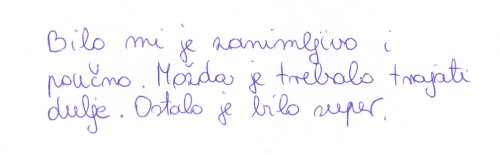 Bilo mi je zanimljivo i
poučno. Možda je trebalo trajati
dulje. Ostalo je bilo super.